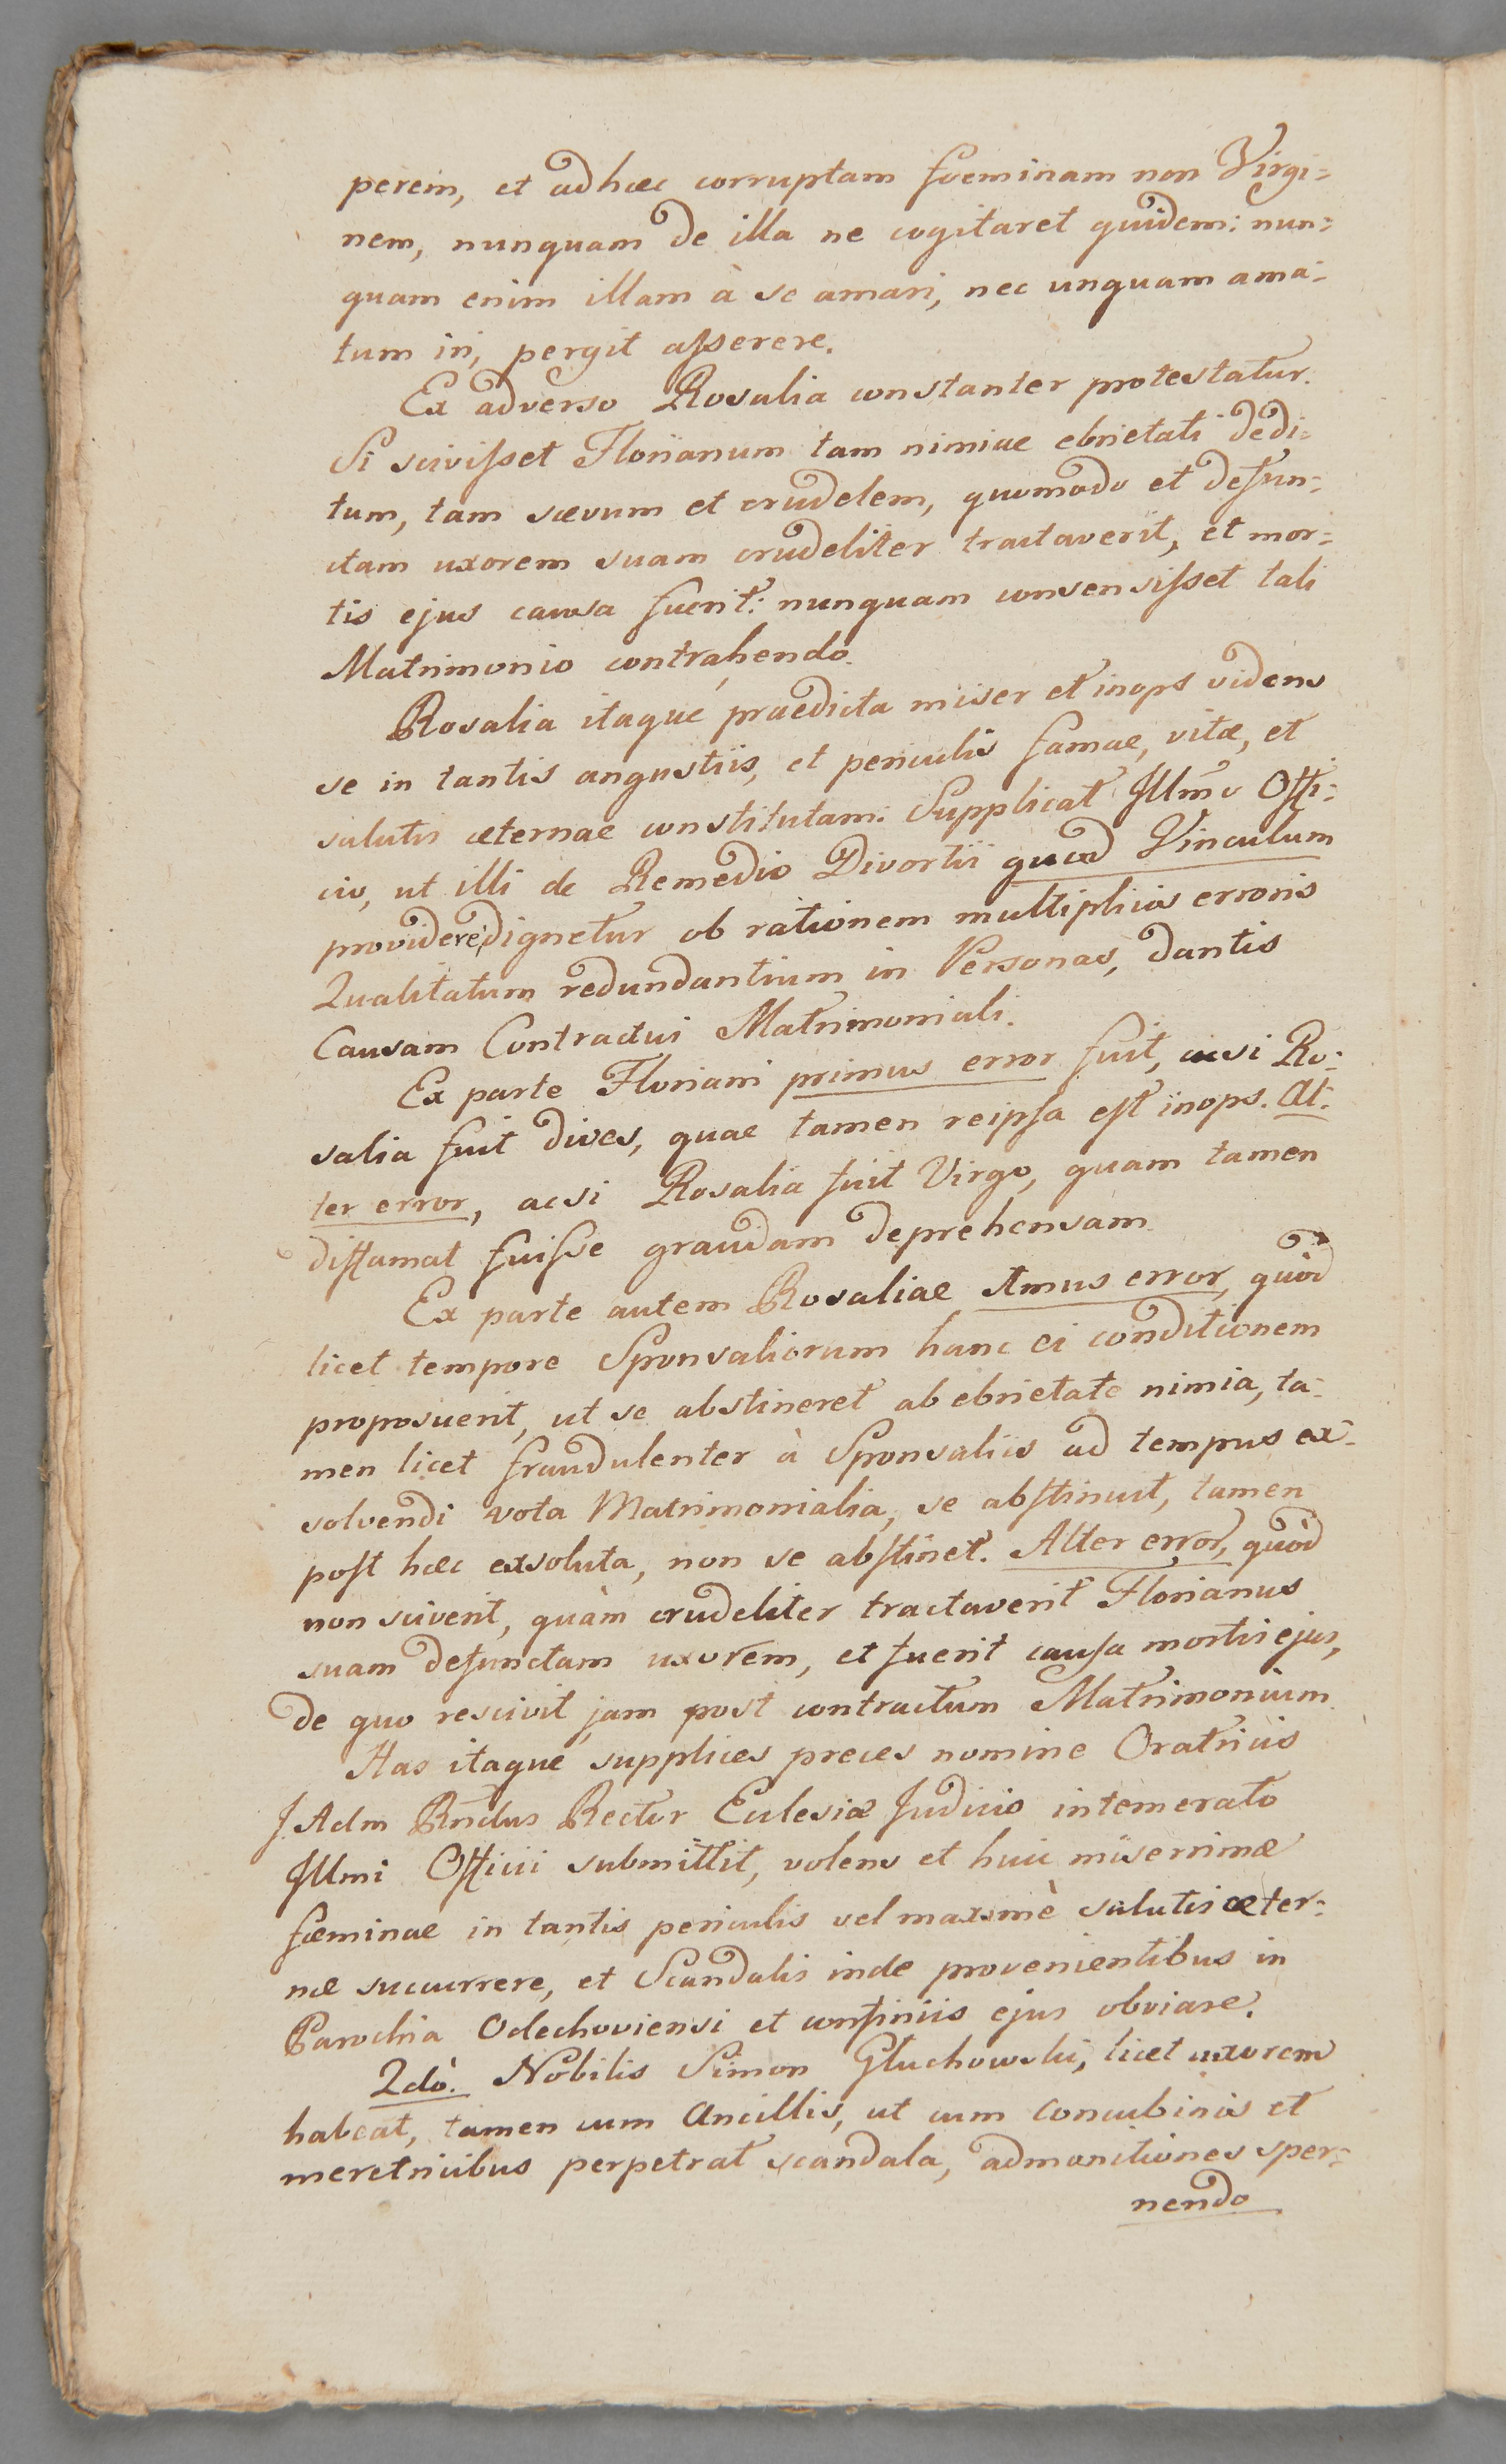 perem, et adhæc corruptam foeminam non Virgi=
nem, nunquam de illa ne cogitaret quidem: nun=
quam enim illam à se amari, nec unquam ama=
tum iri, pergit asserere.
Ex adverso Rosalia constanter protestatur.
Si scivisset Florianum tam nimiae ebrietati dedi=
tum, tam sævum et crudelem, quomodo et defun=
ctam uxorem suam crudeliter tractaverit, et mor=
tis ejus causa fuerit: nunquam consensisset tali
Matrimonio contrahendo.
Rosalia itaque praedicta miser et inops videns
se in tantis angustiis, et periculis famae, vitæ, et
salutis æternae constitutam: Supplicat Illmo Offi=
cio, ut illi de Remedio Divortii quoad Vinculum
providere dignetur ob rationem multiplicis erroris
Qualitatum redundantium in Personas, dantis
Causam Contractui Matrimoniali.
Ex parte Floriani primus error fuit, acsi Ro=
salia fuit dives, quae tamen reipsa est inops. Al=
ter error, acsi Rosalia fuit Virgo, quam tamen
diffamat fuisse gravidam deprehensam.
Ex parte autem Rosaliae 1mus error, quòd
licet tempore Sponsaliorum hanc ei conditionem
proposuerit, ut se abstineret ab ebrietate nimia, ta=
men licet fraudulenter à Sponsaliis ad tempus ex=
solvendi vota Matrimonialia, se abstinuit, tamen
post hæc exsoluta, non se abstinet. Alter error, quòd
non sciverit, quàm crudeliter tractaverit Florianus
suam defunctam uxorem, et fuerit causa mortis ejus,
de quo rescivit jam post contractum Matrimonium.
Has itaque supplices preces nomine Oratricis
J. Adm Rndus Rector Ecclesiæ Judicio intemerato
Illmi Officii submittit, volens et huic miserrimæ
fœminae in tantis periculis vel maximè salutis æter=
næ succurrere, et Scandalis inde provenientibus in
Parochia Odechoviensi et confiniis ejus obviare.
2dò. Nobilis Simon Głuchowski, licet uxorem
habeat, tamen cum Ancillis, ut cum Concubinis et
meretricibus perpetrat scandala, admonitiones sper=
nendo